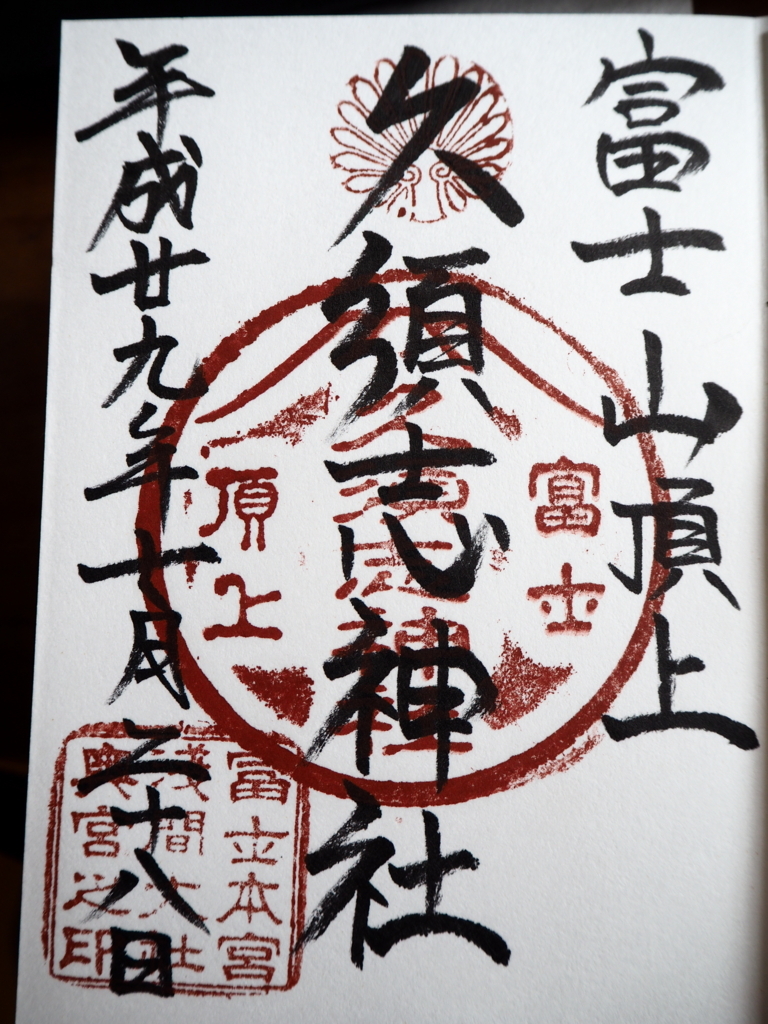 富士山頂上
久須志神社
平成廿九年七月二十八日
富士
頂上
富士本宮
淺間大社
奥宮之印